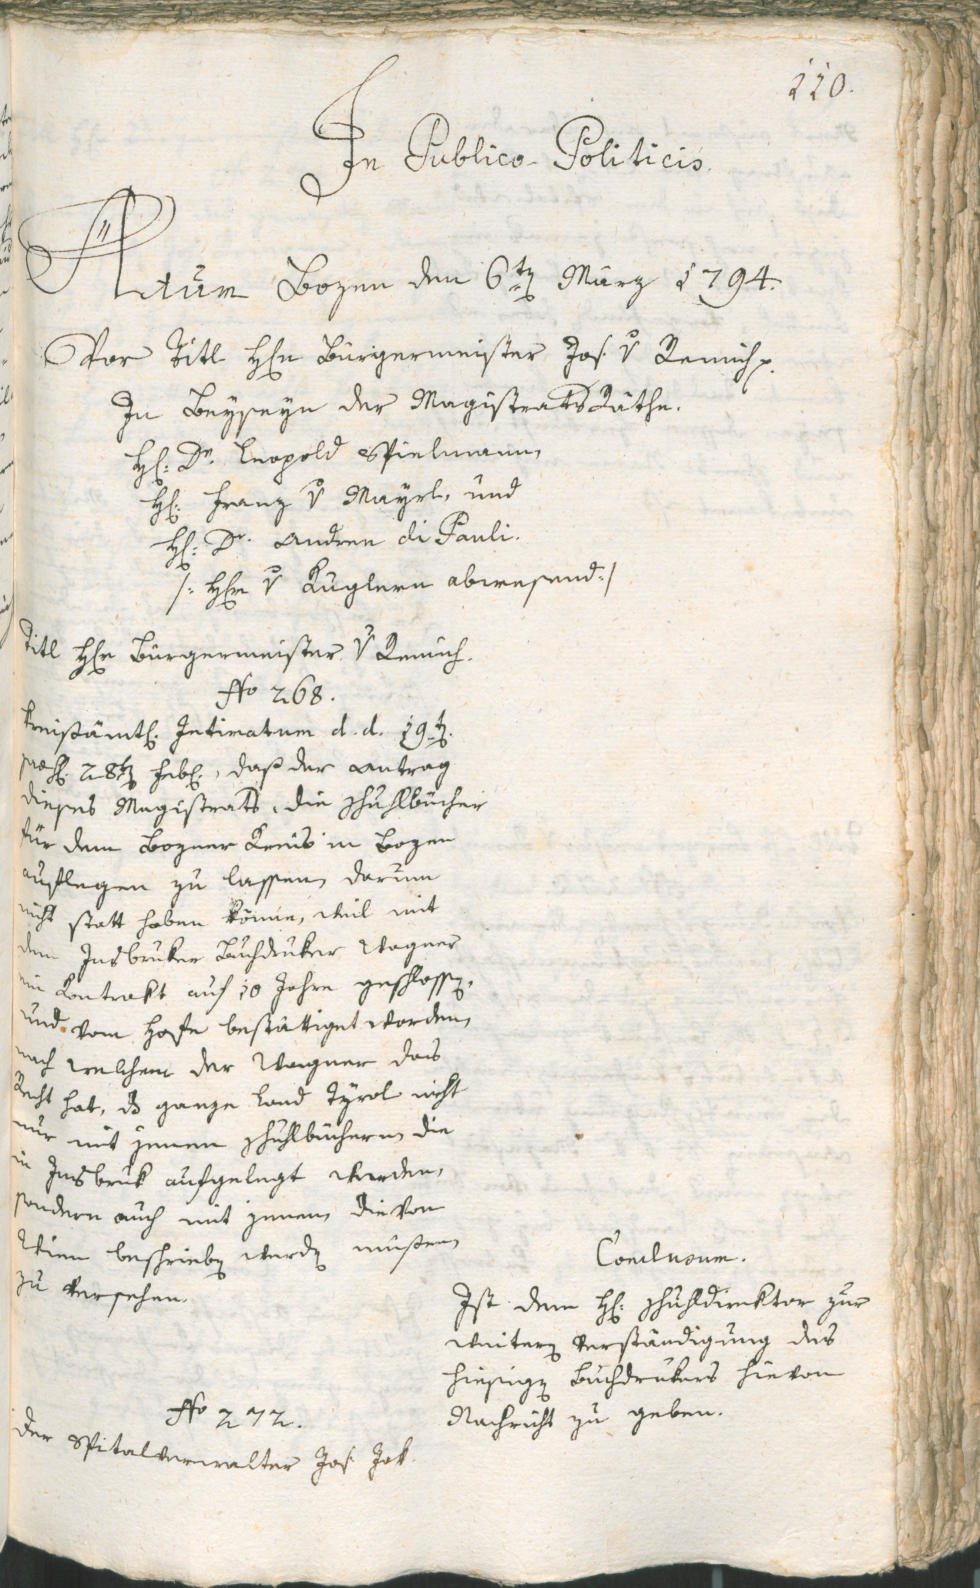 110.
In Publico-Politicis.
Actum Bozen den 6ten März 1794.
Vor Titl Hln Bürgermeister Jos: v Remich p.
In Beyseyn der Magistrats Räthe.
Hl: Dr. Leopold Spielmann,
Hl: Franz v Mayrl, und
Hl: Dr. Andreen di Pauli.
/: Hln v Kuglern abwesend :/
Titl Hln Bürgermeister v Remich.
No 268.
Kreisämtl. Intimatum d. d. 19ten
praes. 28ten Febl., daß der Antrag
dieses Magistrats, die Schuhlbücher
für dem Bozner Kreis in Bozen
auflegen zu lassen, darum
nicht statt haben könne, weil mit
dem Insbruker Buchdruker Wagner
ein Kontrakt auf 10 Jahre geschlossen,
und vom Hofe bestättiget worden,
nach welchem der Wagner das
Recht hat, ds ganze Land Tyrol nicht
nur mit jenen Schuhlbüchern, die
in Insbruk aufgelegt werden,
sondern auch mit jenen, die von
Wien beschrieben werden müßen,
zu versehen.
Conclusum.
Ist dem Hl: Schuhldirektor zur
weitern Verständigung des
hiesigen Buchdrukers hievon
Nachricht zu geben.
No 272.
Der Spitalverwalter Jos: Jak.